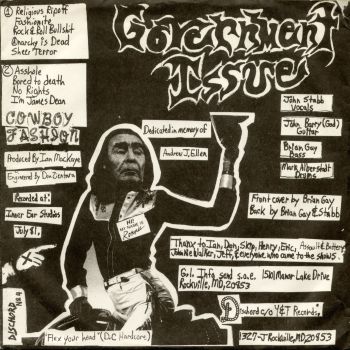 ① Religious Ripoff
Fashionite
Rock & Roll Bullshit
Anarchy Is Dead
Sheer Terror
② Asshole
Bored to death
No Rights
I'm James Dean
COWBOY
FASHION
Produced By Ian MacKaye
Engineered By Don Zientara
Recorded at:
Inner Ear Studios
July 81.
DISCHORD No. 4
GOVERNMENT
ISSUE
John Stabb
Vocals
John Barry (God)
Guitar
Brian Gay
Bass
Mark Alberstadt
Drums
Dedicated in memory of
Andrew J. Ellen
Front cover by Brian Gay
Back by Brian Gay & Stabb
Thanx to Ian, Don, Skip, Henry, Eric, Assault & Battery
John Wewalker, Jeff, everyone who came to the shows.
G.I. Info, send s.a.e. 1510 Manor Lake Drive
Rockville, MD, 20853
Dischord c/o Y&T Records,
1327-J Rockville, MD 20853
"Flex your head" (D.C. Hardcore)